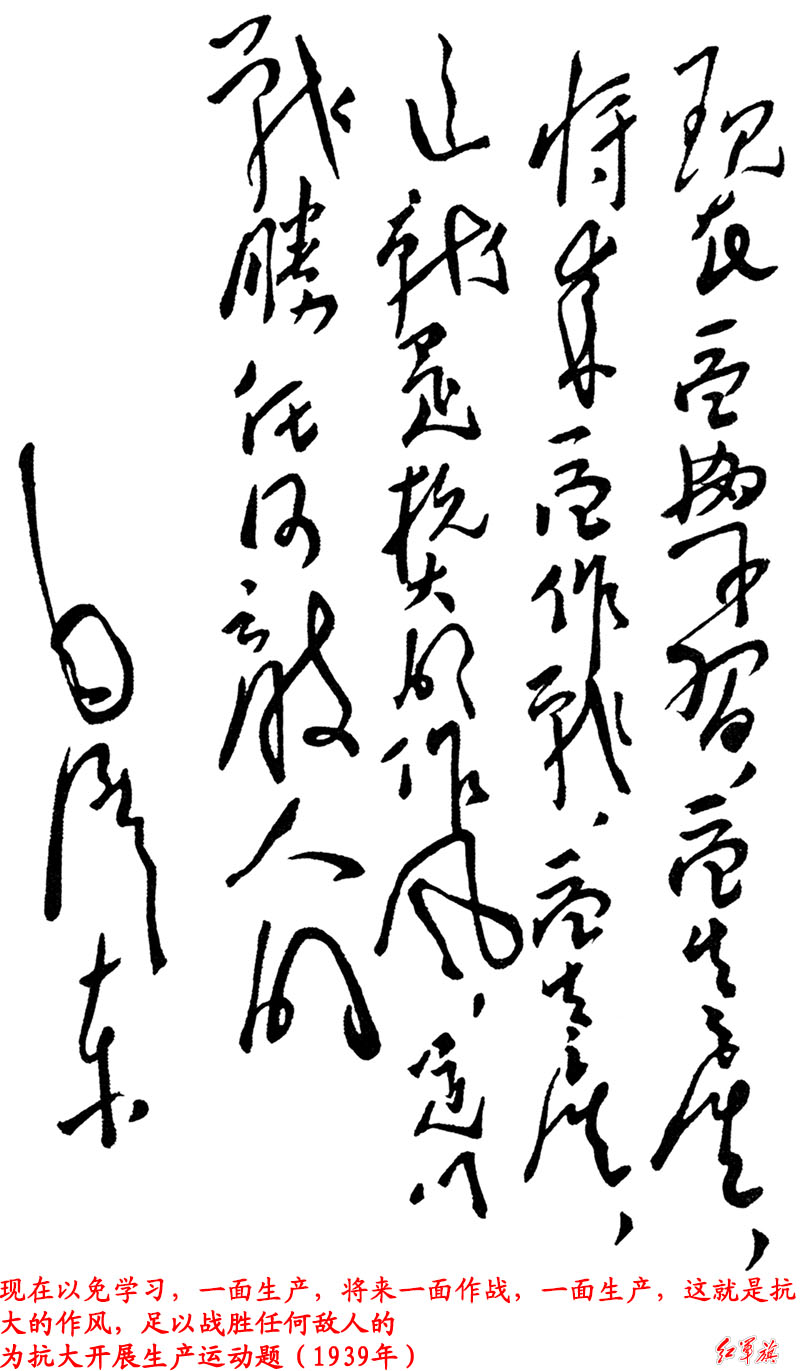 现在一面學习、一面生产，
将来一面作战、一面生产，
这就是抗大的作风，足以
战勝任何敌人的
毛泽东
现在以免学习，一面生产，将来一面作战，一面生产，这就是抗
大的作风，足以战胜任何敌人的
为抗大开展生产运动题（1939年）
红军旗